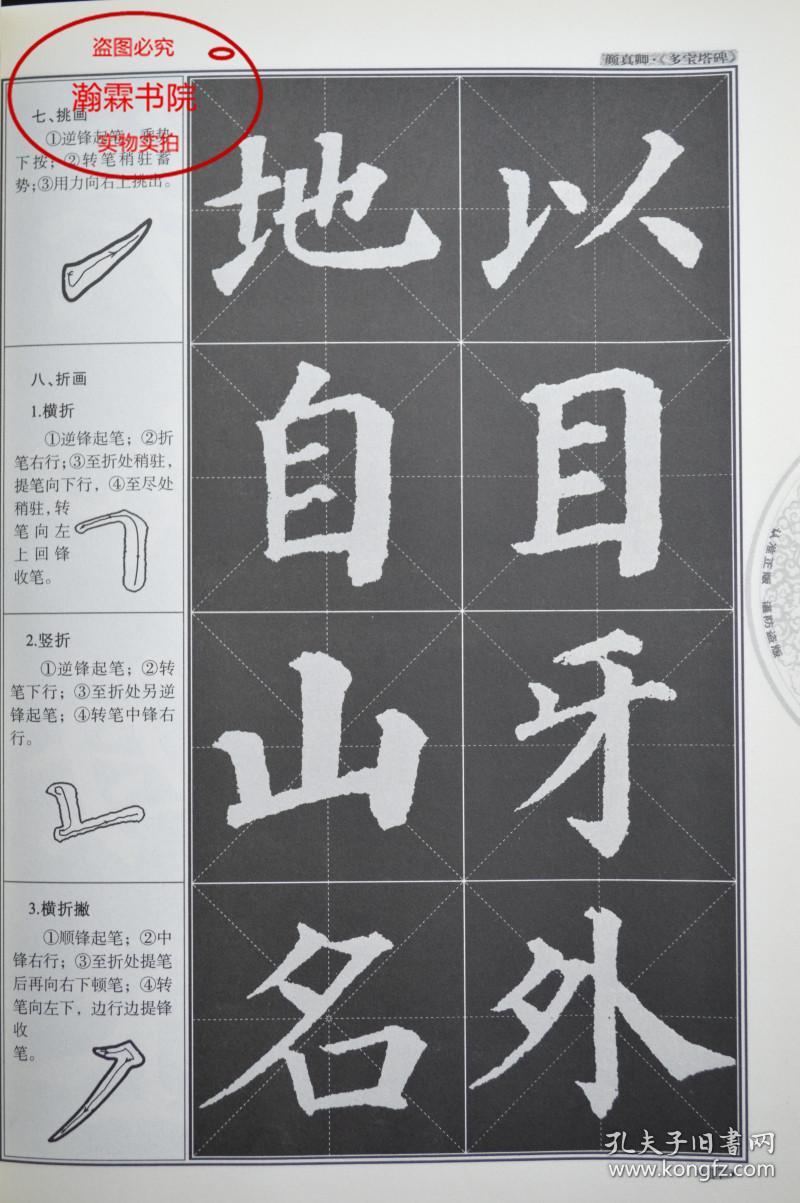 盗图必究
瀚霖书院
实物实拍
颜真卿·《多宝塔碑》
七、挑画
①逆锋起笔，乘势
下按；②转笔稍驻蓄
势；③用力向右上挑出。
八、折画
1.横折
①逆锋起笔；②折
笔右行；③至折处稍驻，
提笔向下行，④至尽处
稍驻，转
笔向左
上回锋
收笔。
2.竖折
①逆锋起笔；②转
笔下行；③至折处另逆
锋起笔；④转笔中锋右
行。
3.横折撇
①顺锋起笔；②中
锋右行；③至折处提笔
后再向右下顿笔；④转
笔向左下，边行边提锋
收
笔。
地以
自目
山牙
名外
认准正版 谨防盗版
孔夫子旧书网
www.kongfz.com